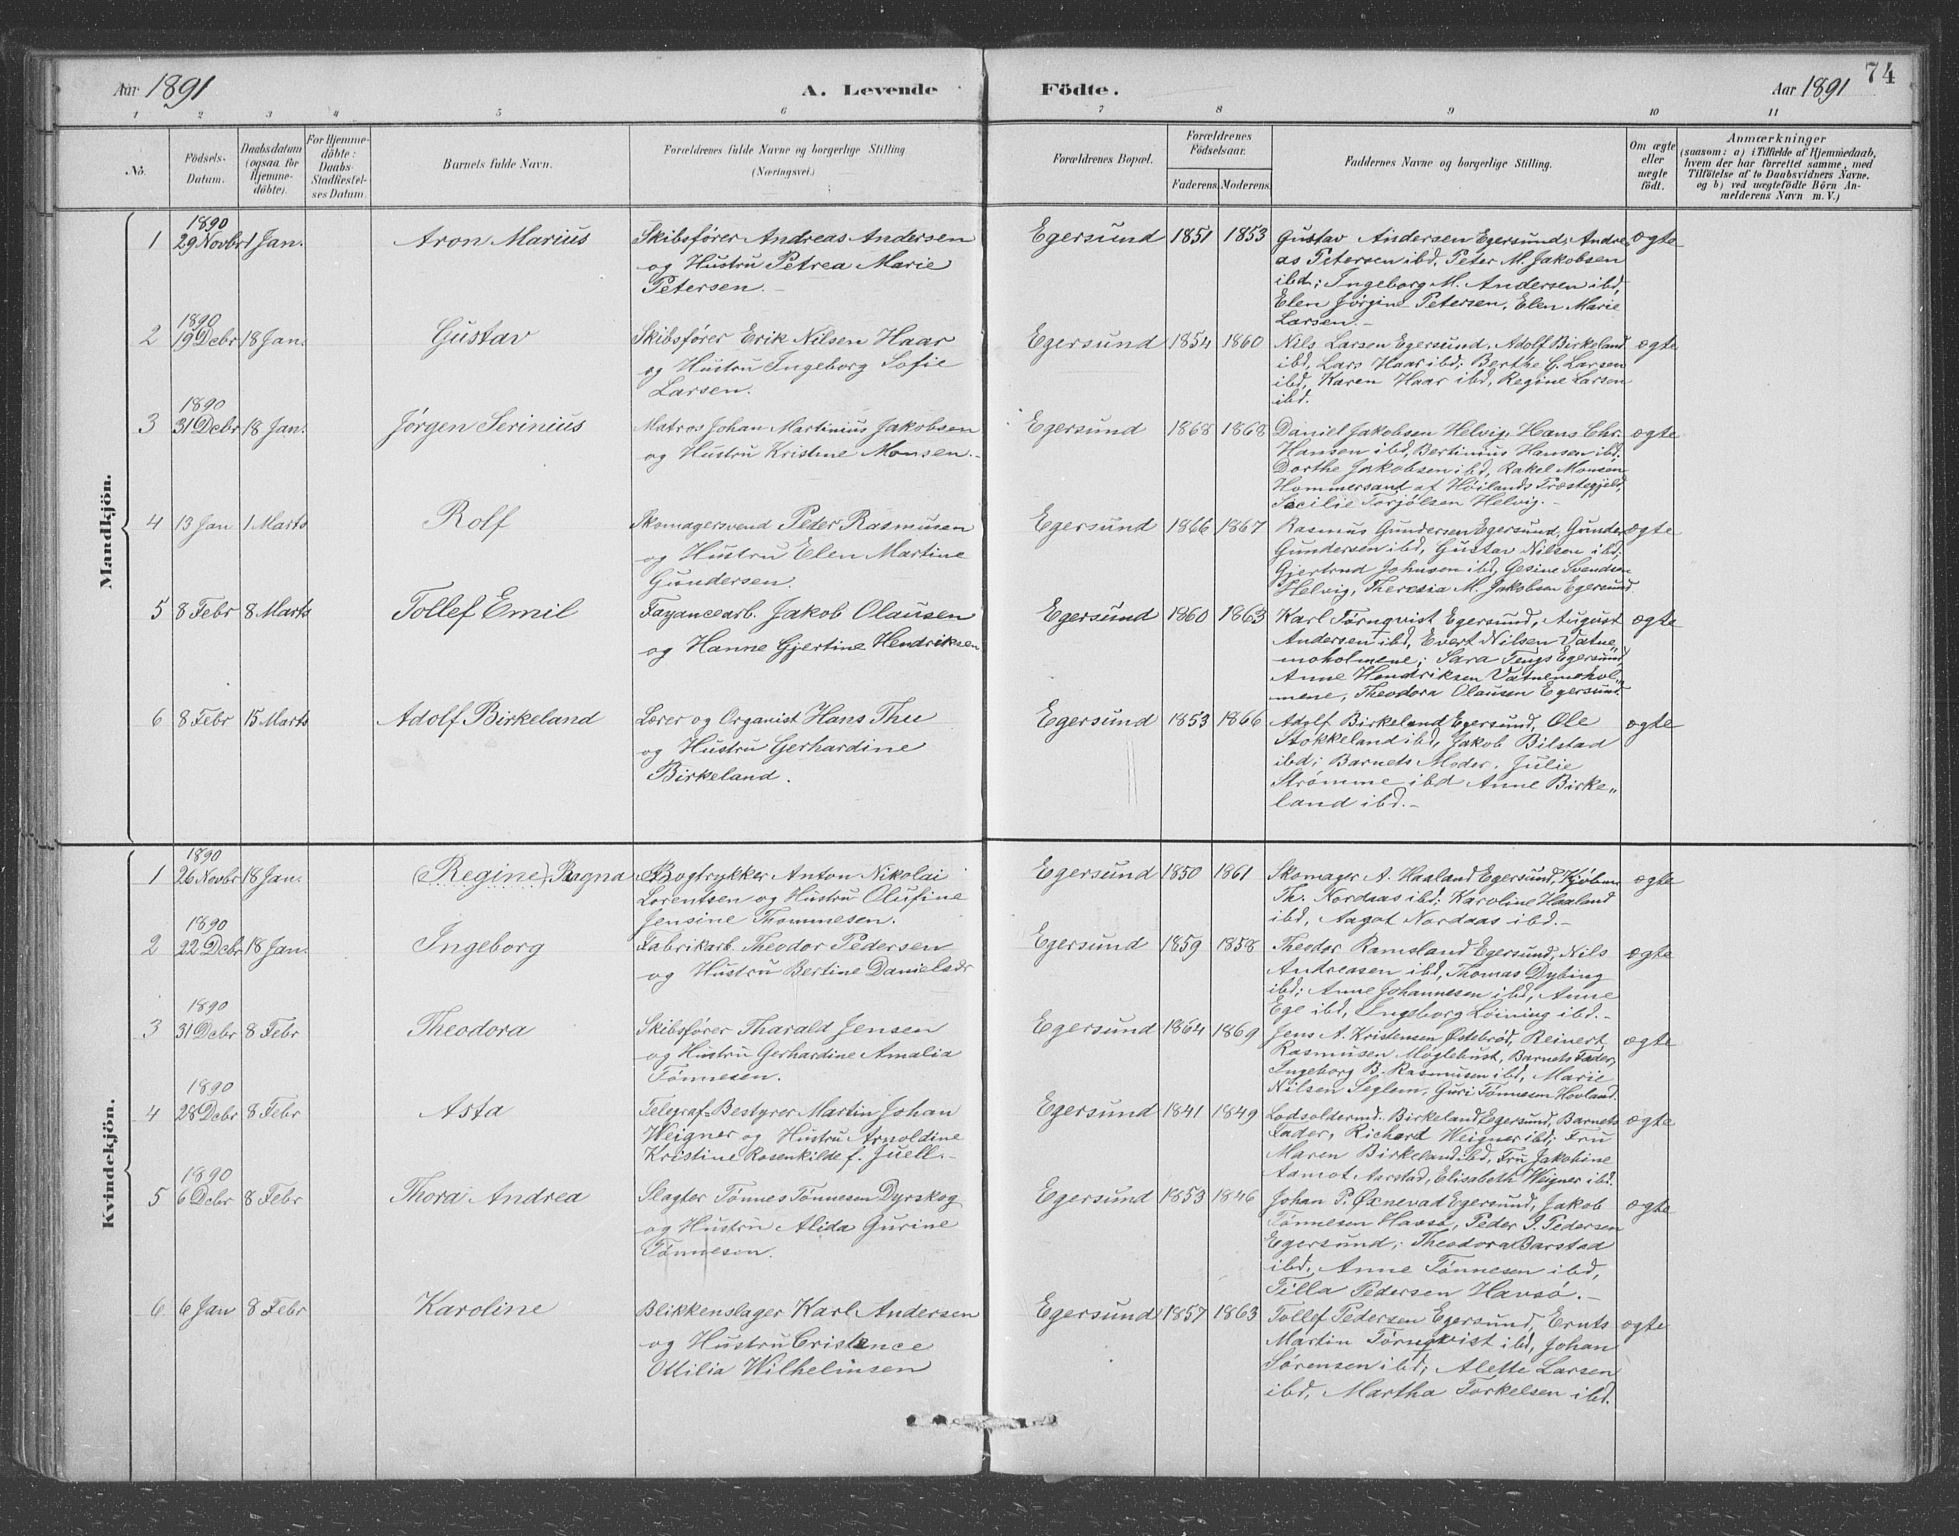 Aar 1891
A. Levende
Födte.
Aar 1891
74
1 2 3 4 5 6 7 8 9 10 11
No.
Födsels-Datum.
Daabsdatum (ogsaa for Hjemmedöbte).
For Hjemmedöbte: Daabs Stadfæstelses Datum.
Barnets fulde Navn.
Forældrenes fulde Navne og borgerlige Stilling
(Næringsvei.)
Forældrenes Bopæl.
Forældrenes Födselsaar.
Faderens. Moderens.
Faddernes Navne og borgerlige Stilling.
Om ægte eller uægte födt.
Anmærkninger
(saasom: a) i Tilfælde af Hjemmedaab,
hvem der har forrettet samme, med
Tilföielse af to Daabsvidners Navne.
og b) ved uægtefödte Börn An-
melderens Navn m. V.)
Mandkjön.
1890
1 29 Novbr 1 Jan. Aron Marius
Skibsfører Andreas Andersen
og Hustru Petrea Marie
Petersen.
Egersund 1851 1853
Gustav Andersen Egersund, Andre
as Petersen ibd. Peter M. Jakobsen
ibd; Ingeborg M. Andersen ibd,
Elen Jørgine Petersen, Elen Marie
Larsen.-
ægte
1890
2 19 Debr 18 Jan. Gustav
Skibsfører Erik Nilsen Haar
og Hustru Ingeborg Sofie
Larsen.
Egersund 1854 1860
Nils Larsen Egersund, Adolf Birkeland
ibd, Lars Haar ibd; Berthe G. Larsen
ibd, Karen Haar ibd, Regine Larsen
ibd.
ægte
1890
3 31 Debr 18 Jan. Jørgen Serinius
Matros Johan Martinius Jakobsen
og Hustru Kristine Monsen.-
Egersund 1868 1868
Daniel Jakobsen Helvig, Hans Chr.
Hansen ibd, Bertinius Hansen ibd;
Dorthe Jakobsen ibd, Rakel Monsen
Hommersand af Høilands Præstegjeld,
Secilie Torjølsen Helvig.-
ægte
4 13 Jan 1 Marts Rolf
Skomagersvend Peder Rasmusen
og Hustru Elen Martine
Gundersen.
Egersund 1866 1867
Rasmus Gundersen Egersund, Gunder
Gundersen ibd, Gustav Nilsen ibd;
Gjertrud Johnsen ibd, Gesine Svendsen
Helvig, Theresia M. Jakobsen Egersund
ægte
5 8 Febr 8 Marts Tollef Emil
Fayancearb. Jakob Olausen
og Hanne Gjertine Hendriksen
Egersund 1860 1863
Karl Tørnqvist Egersund, August
Andersen ibd, Evert Nilsen Vatne„
moholmene; Sara Tengs Egersund,
Anne Hendriksen Vatnemohol„
mene, Theodora Olausen Egersund
ægte
6 8 Febr 15 Marts Adolf Birkeland
Lærer og Organist Hans Thu
og Hustru Gerhardine
Birkeland.
Egersund 1853 1866
Adolf Birkeland Egersund, Ole
Stokkeland ibd, Jakob Bilstad
ibd; Barnets Moder. Julie
Strømme ibd Anne Birke„
land ibd.-
ægte
Kvindekjön.
1890
1 26 Novbr 18 Jan. (Regine) Ragna
Bogtrykker Anton Nikolai
Lorentsen og Hustru Olufine
Jensine Thommesen.
Egersund 1850 1861
Skomager A. Haaland Egersund,
Th. Nordaas ibd; Karoline Haaland
ibd, Aagot Nordaas ibd.-
ægte
1890
2 22 Debr 18 Jan. Ingeborg
Fabrikarb. Theodor Pedersen
og Hustru Bertine Danielsdr
Egersund 1859 1858
Theodor Ramsland Egersund, Nils
Andreasen ibd, Thomas Dybing
ibd; Anne Johannesen ibd, Anne
Ege ibd, Ingeborg Løining ibd.-
ægte
1890
3 31 Debr 8 Febr Theodora
Skibsfører Tharald Jensen
og Hustru Gerhardine Amalia
Tønnesen.
Egersund 1864 1869
Jens A. Kristensen Østebrød, Reinert
Rasmusen Møglebust, Barnets Fader,
Ingeborg B. Rasmusen ibd, Marie
Nilsen Seglem, Guri Tønnesen Hovland.
ægte
1890
4 28 Debr 8 Febr Asta
Telegraf-Bestyrer Martin Johan
Weigner og Hustru Arnoldine
Kristine Rosenkilde f. Juell.-
Egersund 1841 1849
Lodsoldermd. Birkeland Egersund, Barnets
Fader, Richard Weigner ibd; Fru
Maren Birkeland ibd, Fru Jakobine
Aamot Aarstad, Elisabeth Weigner ibd.
ægte
1890
5 6 Debr 8 Febr Thora Andrea
Slagter Tønnes Tønnesen Dyrskog
og Hustru Alida Gurine
Tønnesen.
Egersund 1853 1846
Johan P. Øxnevad Egersund, Jakob
Tønnesen Havsø, Peder J. Pedersen
Egersund; Theodora Barstad
ibd, Anne Tønnesen ibd,
Tilla Pedersen Havsø.-
ægte
6 6 Jan 8 Febr Karoline
Blikkenslager Karl Andersen
og Hustru Cristence
Ottilia Wilhelmsen
Egersund 1857 1863
Tollef Pedersen Egersund, Ernts
Martin Tørnqvist ibd, Johan
Sørensen ibd; Alette Larsen
ibd, Martha Torkelsen ibd.
ægte